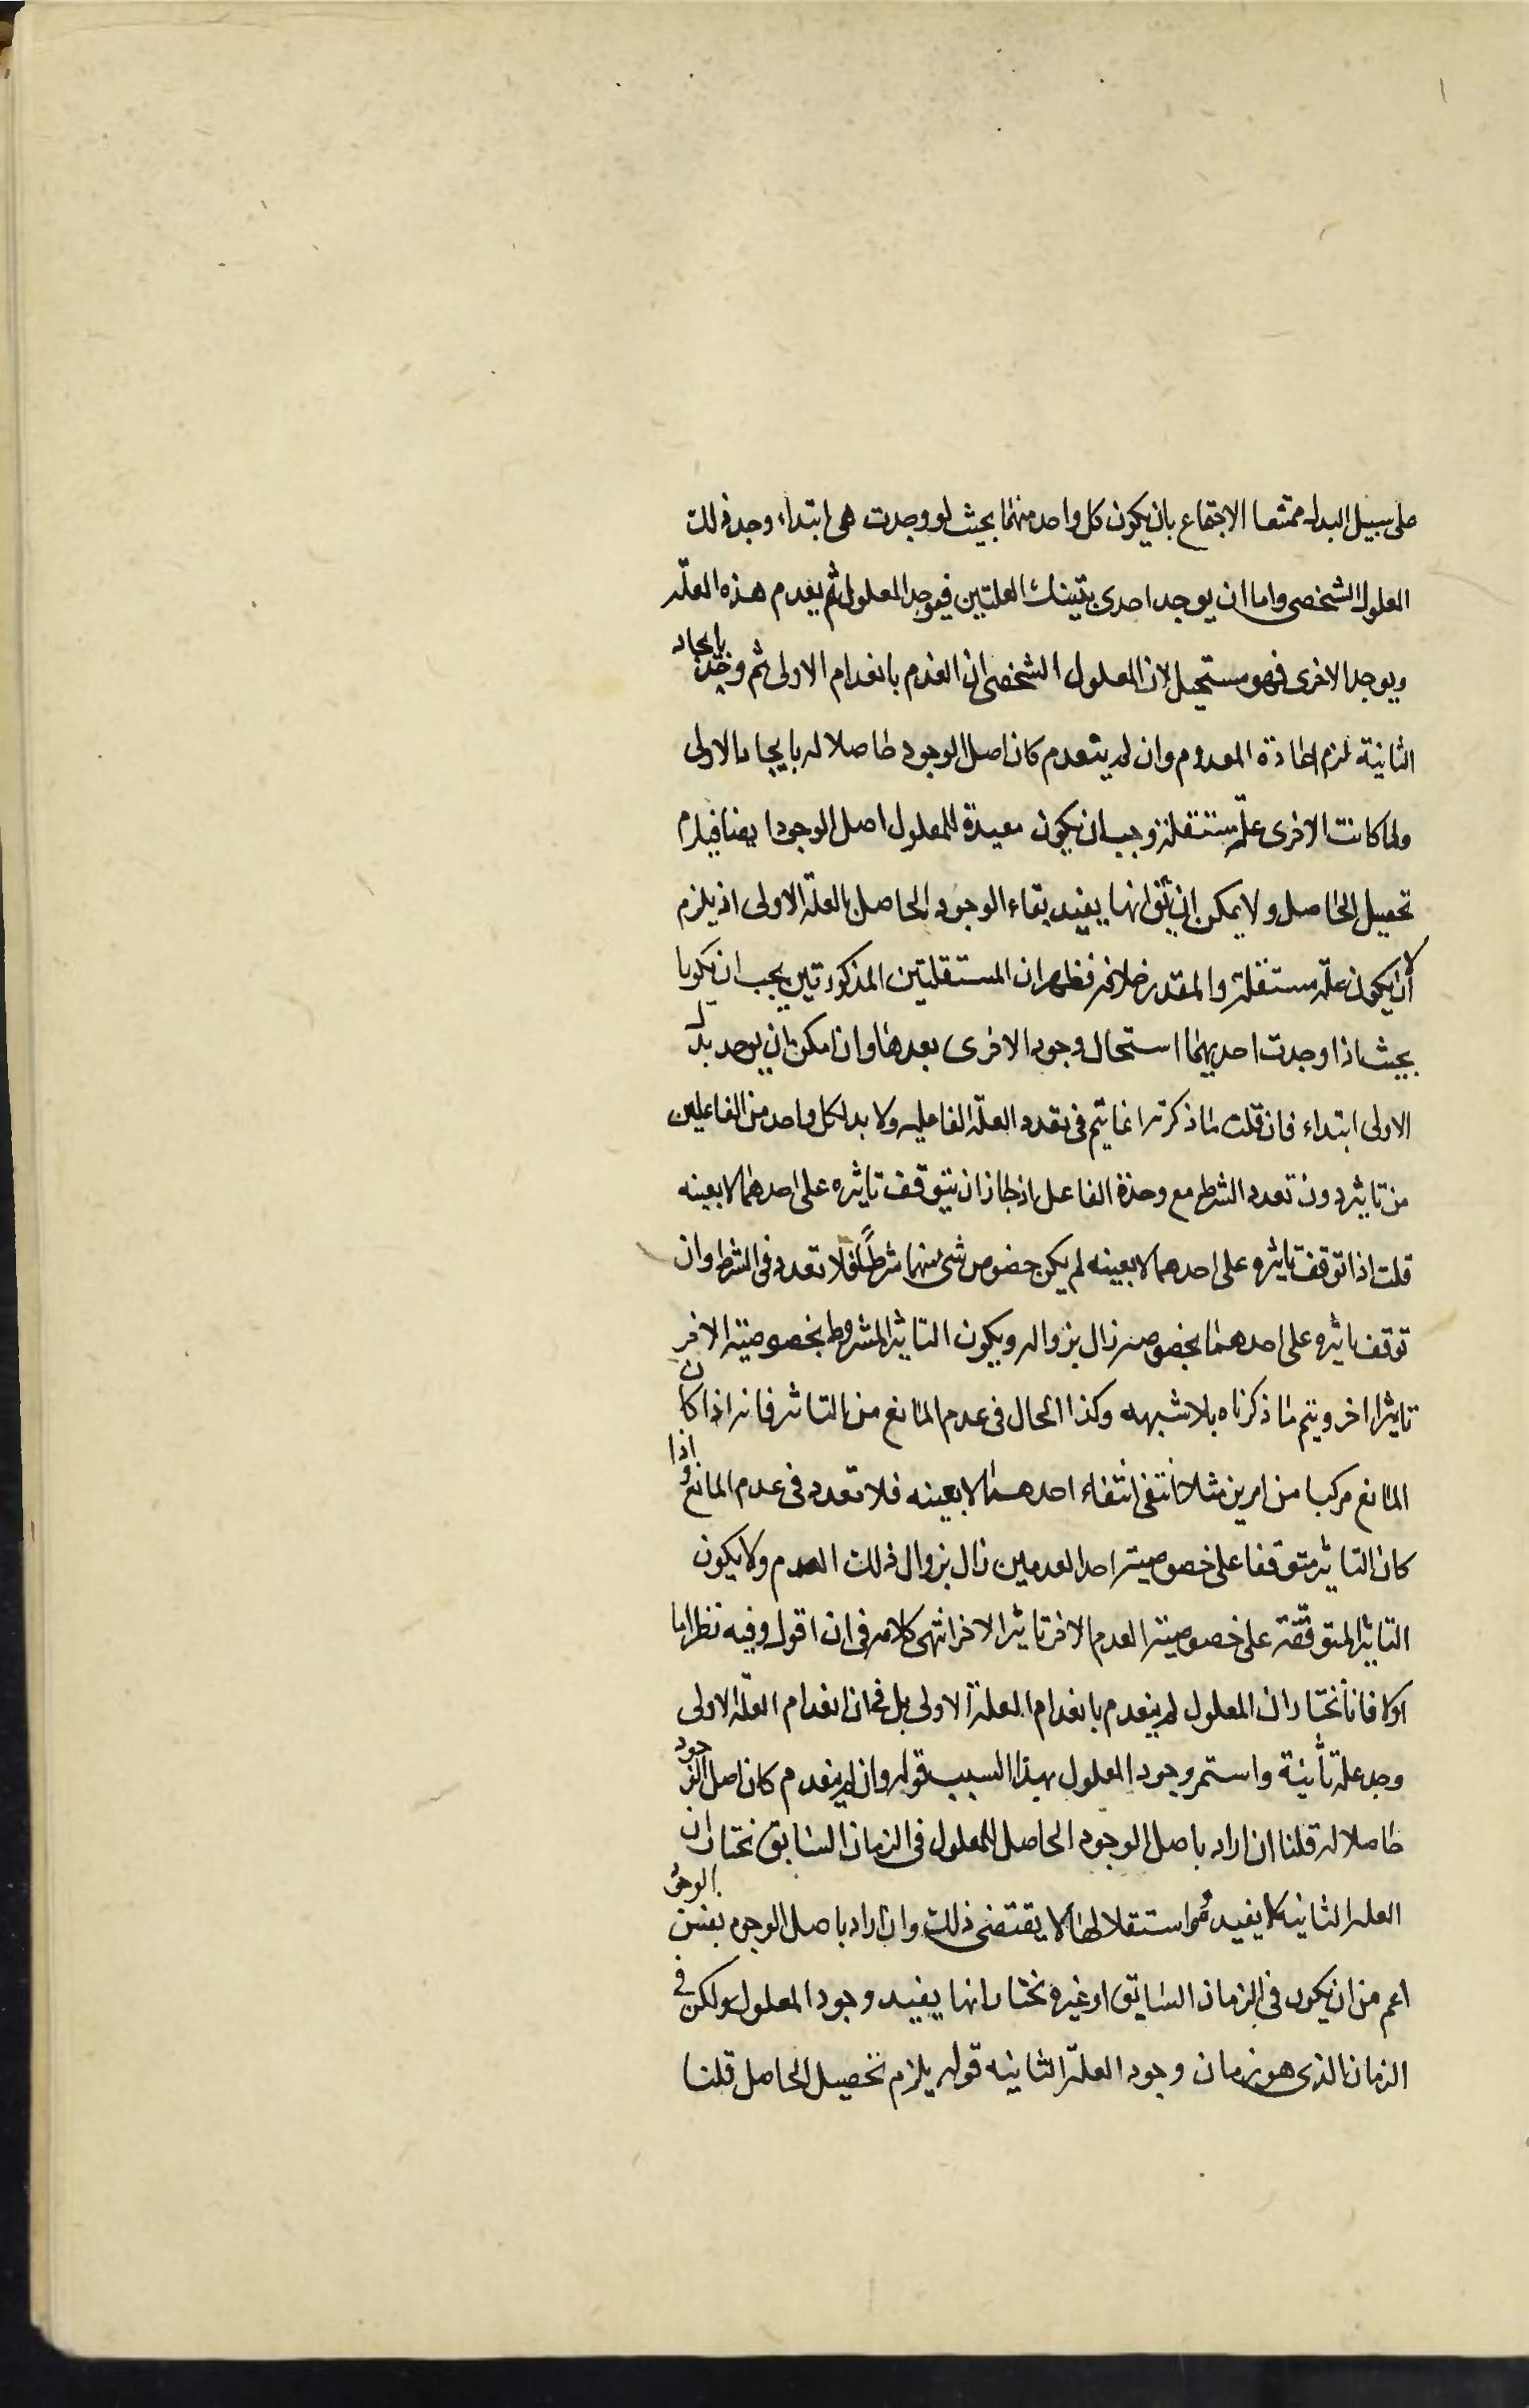 على سبيل البدل ممتنعا الاجتماع بان يكون كل واحد منهما بحيث لو وجدت هى ابتداء وجد ذلك
المعلول الشخصى واما ان يوجد احدى تينك العلتين فيوجد المعلول ثم ينعدم هذه العلّة
ويوجد الاخرى فهو مستحيل لان المعلول الشخصى ان انعدم بانعدام الاولى ثم وجد بايجاد
الثانية لزم اعادة المعدوم وان لم ينعدم كان اصل الوجود حاصلا له بايجاد الاولى
ولما كانت الاخرى علّة مستقلة وجب ان يكون مفيدة للمعلول اصل الوجود ايضا فيلزم
تحصيل الحاصل ولا يمكن ان يقال انها يفيد بقاء الوجود الحاصل بالعلة الاولى اذ يلزم
ان لا يكون علة مستقلة والمقدر خلافه فظهر ان المستقلتين المذكورتين يجب ان يكونا
بحيث اذا وجدت احديهما استحال وجود الاخرى بعدها وان امكن ان يوجد بدل
الاولى ابتداء فان قلت ما ذكرته انما يتم فى تعدد العلة الفاعليه ولا بد لكل واحد من الفاعلين
من تاثير دون تعدد الشرط مع وحدة الفاعل اذ جاز ان يتوقف تاثيره على احدهما لا بعينه
قلت اذا توقف تاثيره على احدهما لا بعينه لم يكن خصوص شى منهما شرطا فلا تعدد فى الشرط وان
توقف تاثيره على احدهما بخصوصه زال بزواله ويكون التاثير المشروط بخصوصية الاخر
تاثيرا اخر ويتم ما ذكرناه بلا شبهه وكذا الحال فى عدم المانع من التاثير فانه اذا كان
المانع مركبا من امرين مثلا انتفى انتفاء احدهما لا بعينه فلا تعدد فى عدم المانع و اذا
كان التاثير متوقفا على خصوصية احد العدمين زال بزوال ذلك العدم ولا يكون
التاثير المتوقفة على خصوصية العدم الاخر تاثير الاخر انتهى كلامه فى ان اقول وفيه نظر اما
اولا فانا نختار ان المعلول لم ينعدم بانعدام العلة الاولى بل فى ان انعدام العلة الاولى
وجد علة ثانية واستمر وجود المعلول بهذا السبب قوله وان لم ينعدم كان اصل الوجود
حاصلا له قلنا ان اراد باصل الوجود الحاصل للمعلول فى الزمان السابق نختار ان
العلة الثانيه لا يفيده واستقلالها لا يقتضى ذلك وان اراد باصل الوجود نفس الوجود
اعم من ان يكون فى الزمان السابق او غيره نختار انها يفيد وجود المعلول ولكن فى
الزمان الذى هو زمان وجود العلة الثانيه قوله يلزم تحصيل الحاصل قلنا